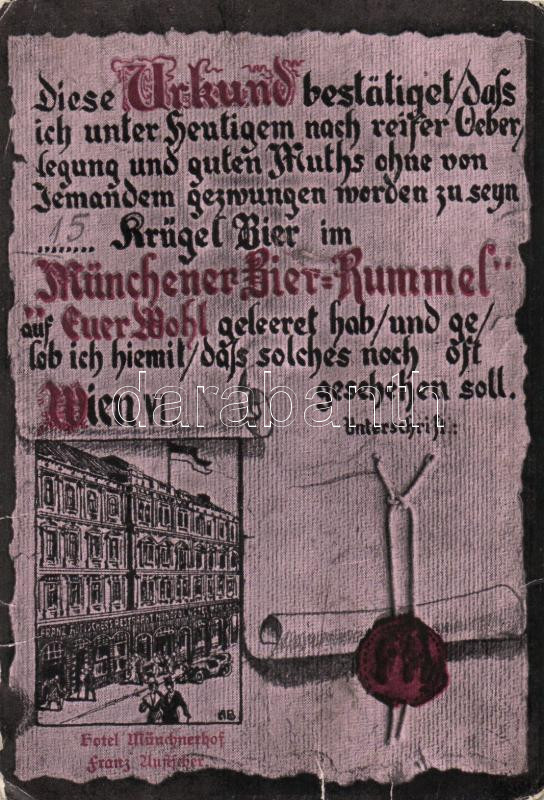 Diese Urkund bestätiget/daſs
ich unter Heutigem nach reifer Ueber/
legung und guten Muths ohne von
Jemandem gezwungen worden zu seyn
15 ........ Krügel Bier im
„Münchener Bier=Rummel"
auf Euer Wohl geleeret hab/und ge/
lob ich hiemit/daſs solches noch oft
geschehen soll.
Wien
Unterschrift:
darabanth
FRANZ
AB
Hotel Münchnerhof
Franz